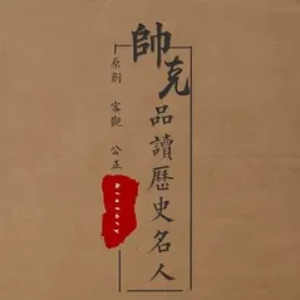 帥克
品讀歷史名人
原創 客觀 公正
history